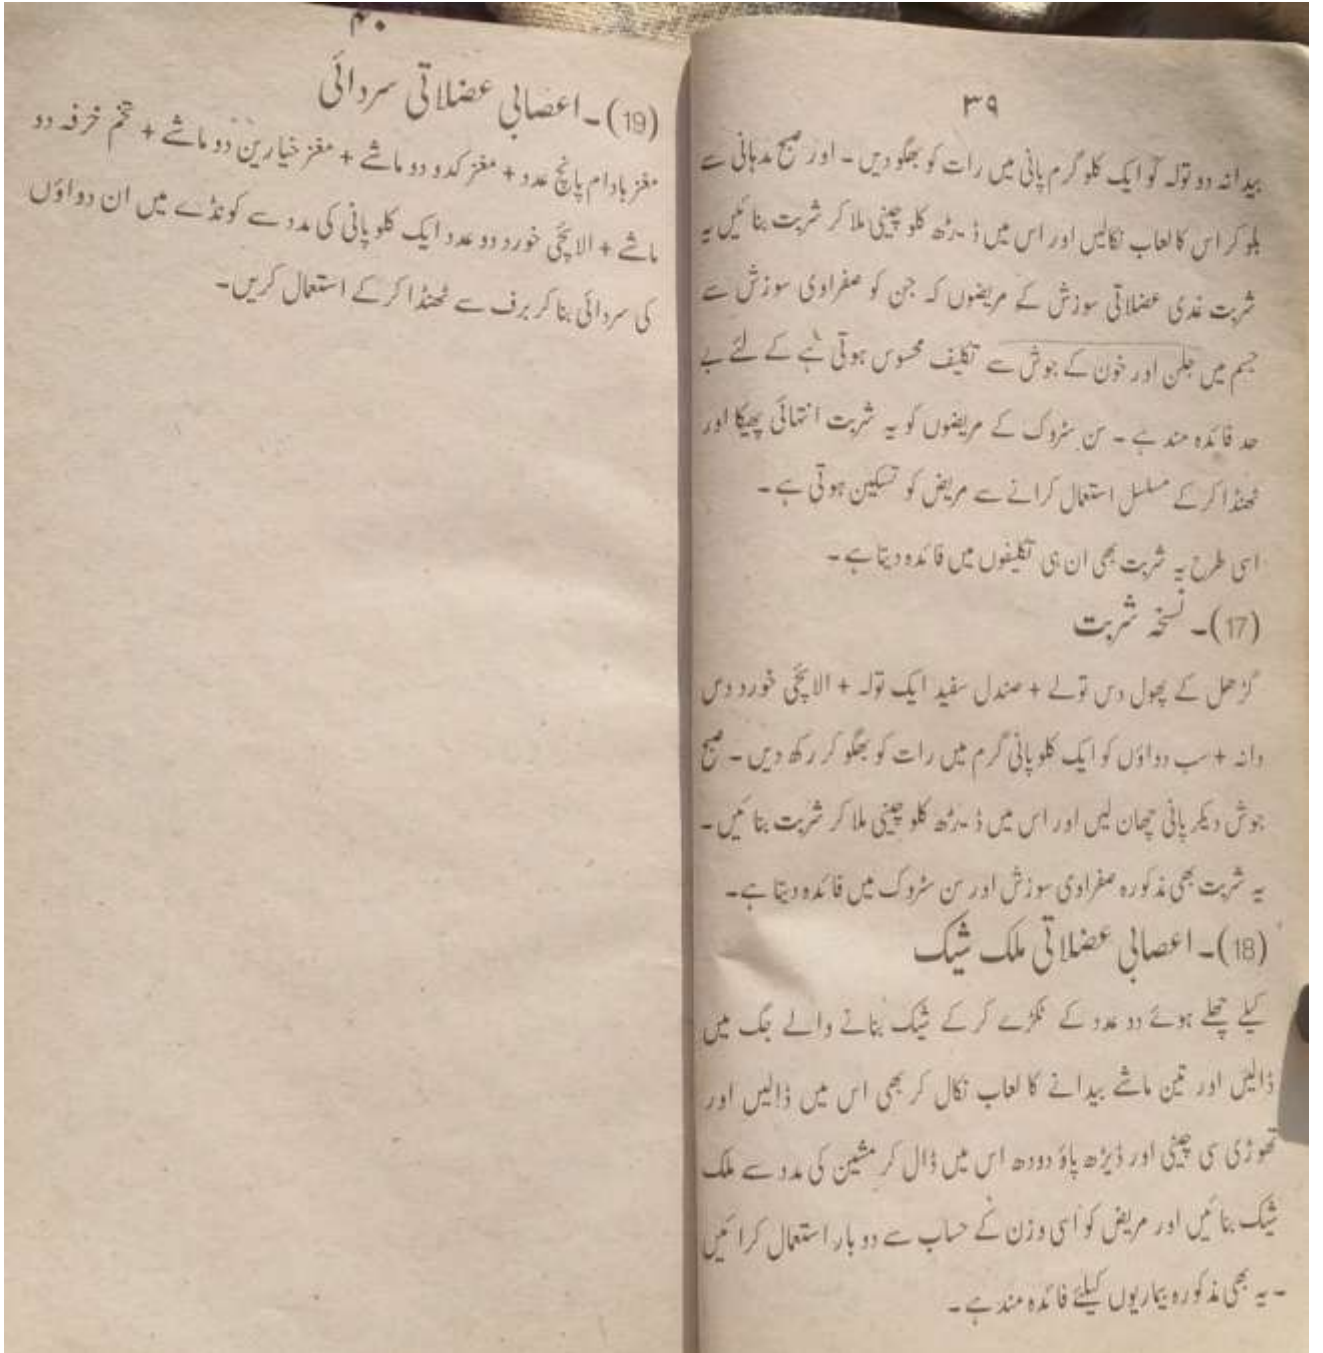 ۳۹
بیدانہ دو تولہ کو ایک کلو گرم پانی میں رات کو بھگو دیں ۔ اور صبح مدہانی سے
بلو کر اس کا لعاب نکالیں اور اس میں ڈیڑھ کلو چینی ملا کر شربت بنائیں یہ
شربت غدی عضلاتی سوزش کے مریضوں کہ جن کو صفراوی سوزش سے
جسم میں جلن اور خون کے جوش سے تکلیف محسوس ہوتی ہے کے لئے بے
حد فائدہ مند ہے ۔ سن سٹروک کے مریضوں کو یہ شربت انتہائی پھیکا اور
ٹھنڈا کر کے مسلسل استعمال کرانے سے مریض کو تسکین ہوتی ہے ۔
اسی طرح یہ شربت بھی ان ہی تکلیفوں میں فائدہ دیتا ہے ۔
(17)۔ نسخہ شربت
گڑھل کے پھول دس تولے + صندل سفید ایک تولہ + الائچی خورد دس
دانہ + سب دواؤں کو ایک کلو پانی گرم میں رات کو بھگو کر رکھ دیں ۔ صبح
جوش دیکر پانی چھان لیں اور اس میں ڈیڑھ کلو چینی ملا کر شربت بنائیں ۔
یہ شربت بھی مذکورہ صفراوی سوزش اور سن سٹروک میں فائدہ دیتا ہے ۔
(18)۔ اعصابی عضلاتی ملک شیک
کیلے چھلے ہوئے دو عدد کے ٹکڑے کر کے شیک بنانے والے جگ میں
ڈالیں اور تین ماشے بیدانے کا لعاب نکال کر بھی اس میں ڈالیں اور
تھوڑی سی چینی اور ڈیڑھ پاؤ دودھ اس میں ڈال کر مشین کی مدد سے ملک
شیک بنائیں اور مریض کو اسی وزن کے حساب سے دو بار استعمال کرائیں
۔ یہ بھی مذکورہ بیماریوں کیلئے فائدہ مند ہے ۔
۴۰
(19)۔ اعصابی عضلاتی سردائی
مغز بادام پانچ عدد + مغز کدو دو ماشے + مغز خیارین دو ماشے + تخم خرفہ دو
ماشے + الائچی خورد دو عدد ایک کلو پانی کی مدد سے کونڈے میں ان دواؤں
کی سردائی بنا کر برف سے ٹھنڈا کر کے استعمال کریں ۔